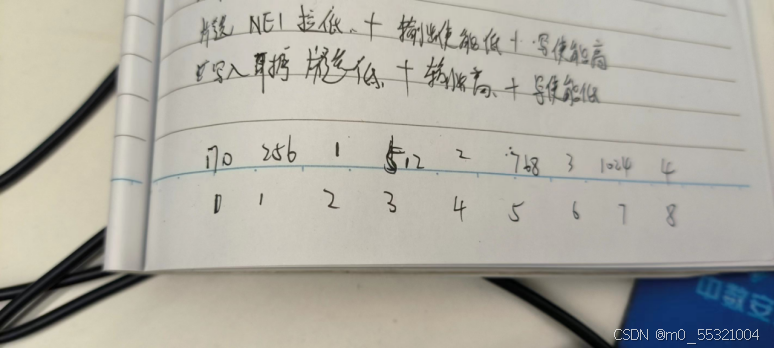 片选 NE1 拉低、+ 输出使能低 + 写使能高
写入 片选低、+ 输出高、+ 写使能低
170 256 1 512 2 768 3 1024 4
0 1 2 3 4 5 6 7 8
CSDN @m0_55321004